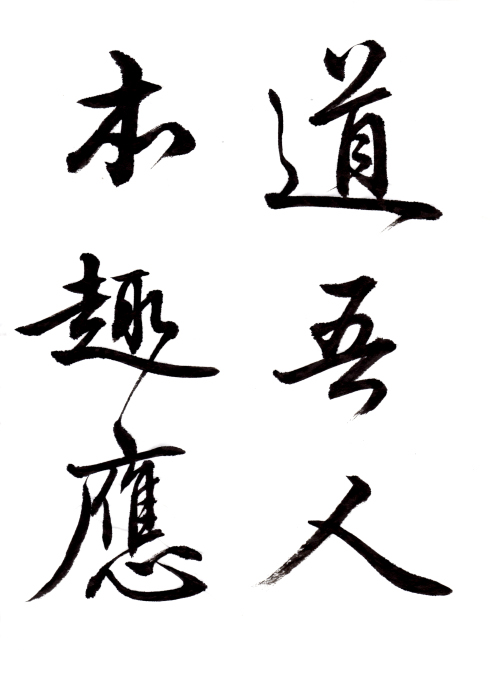 道吾人
本趣應